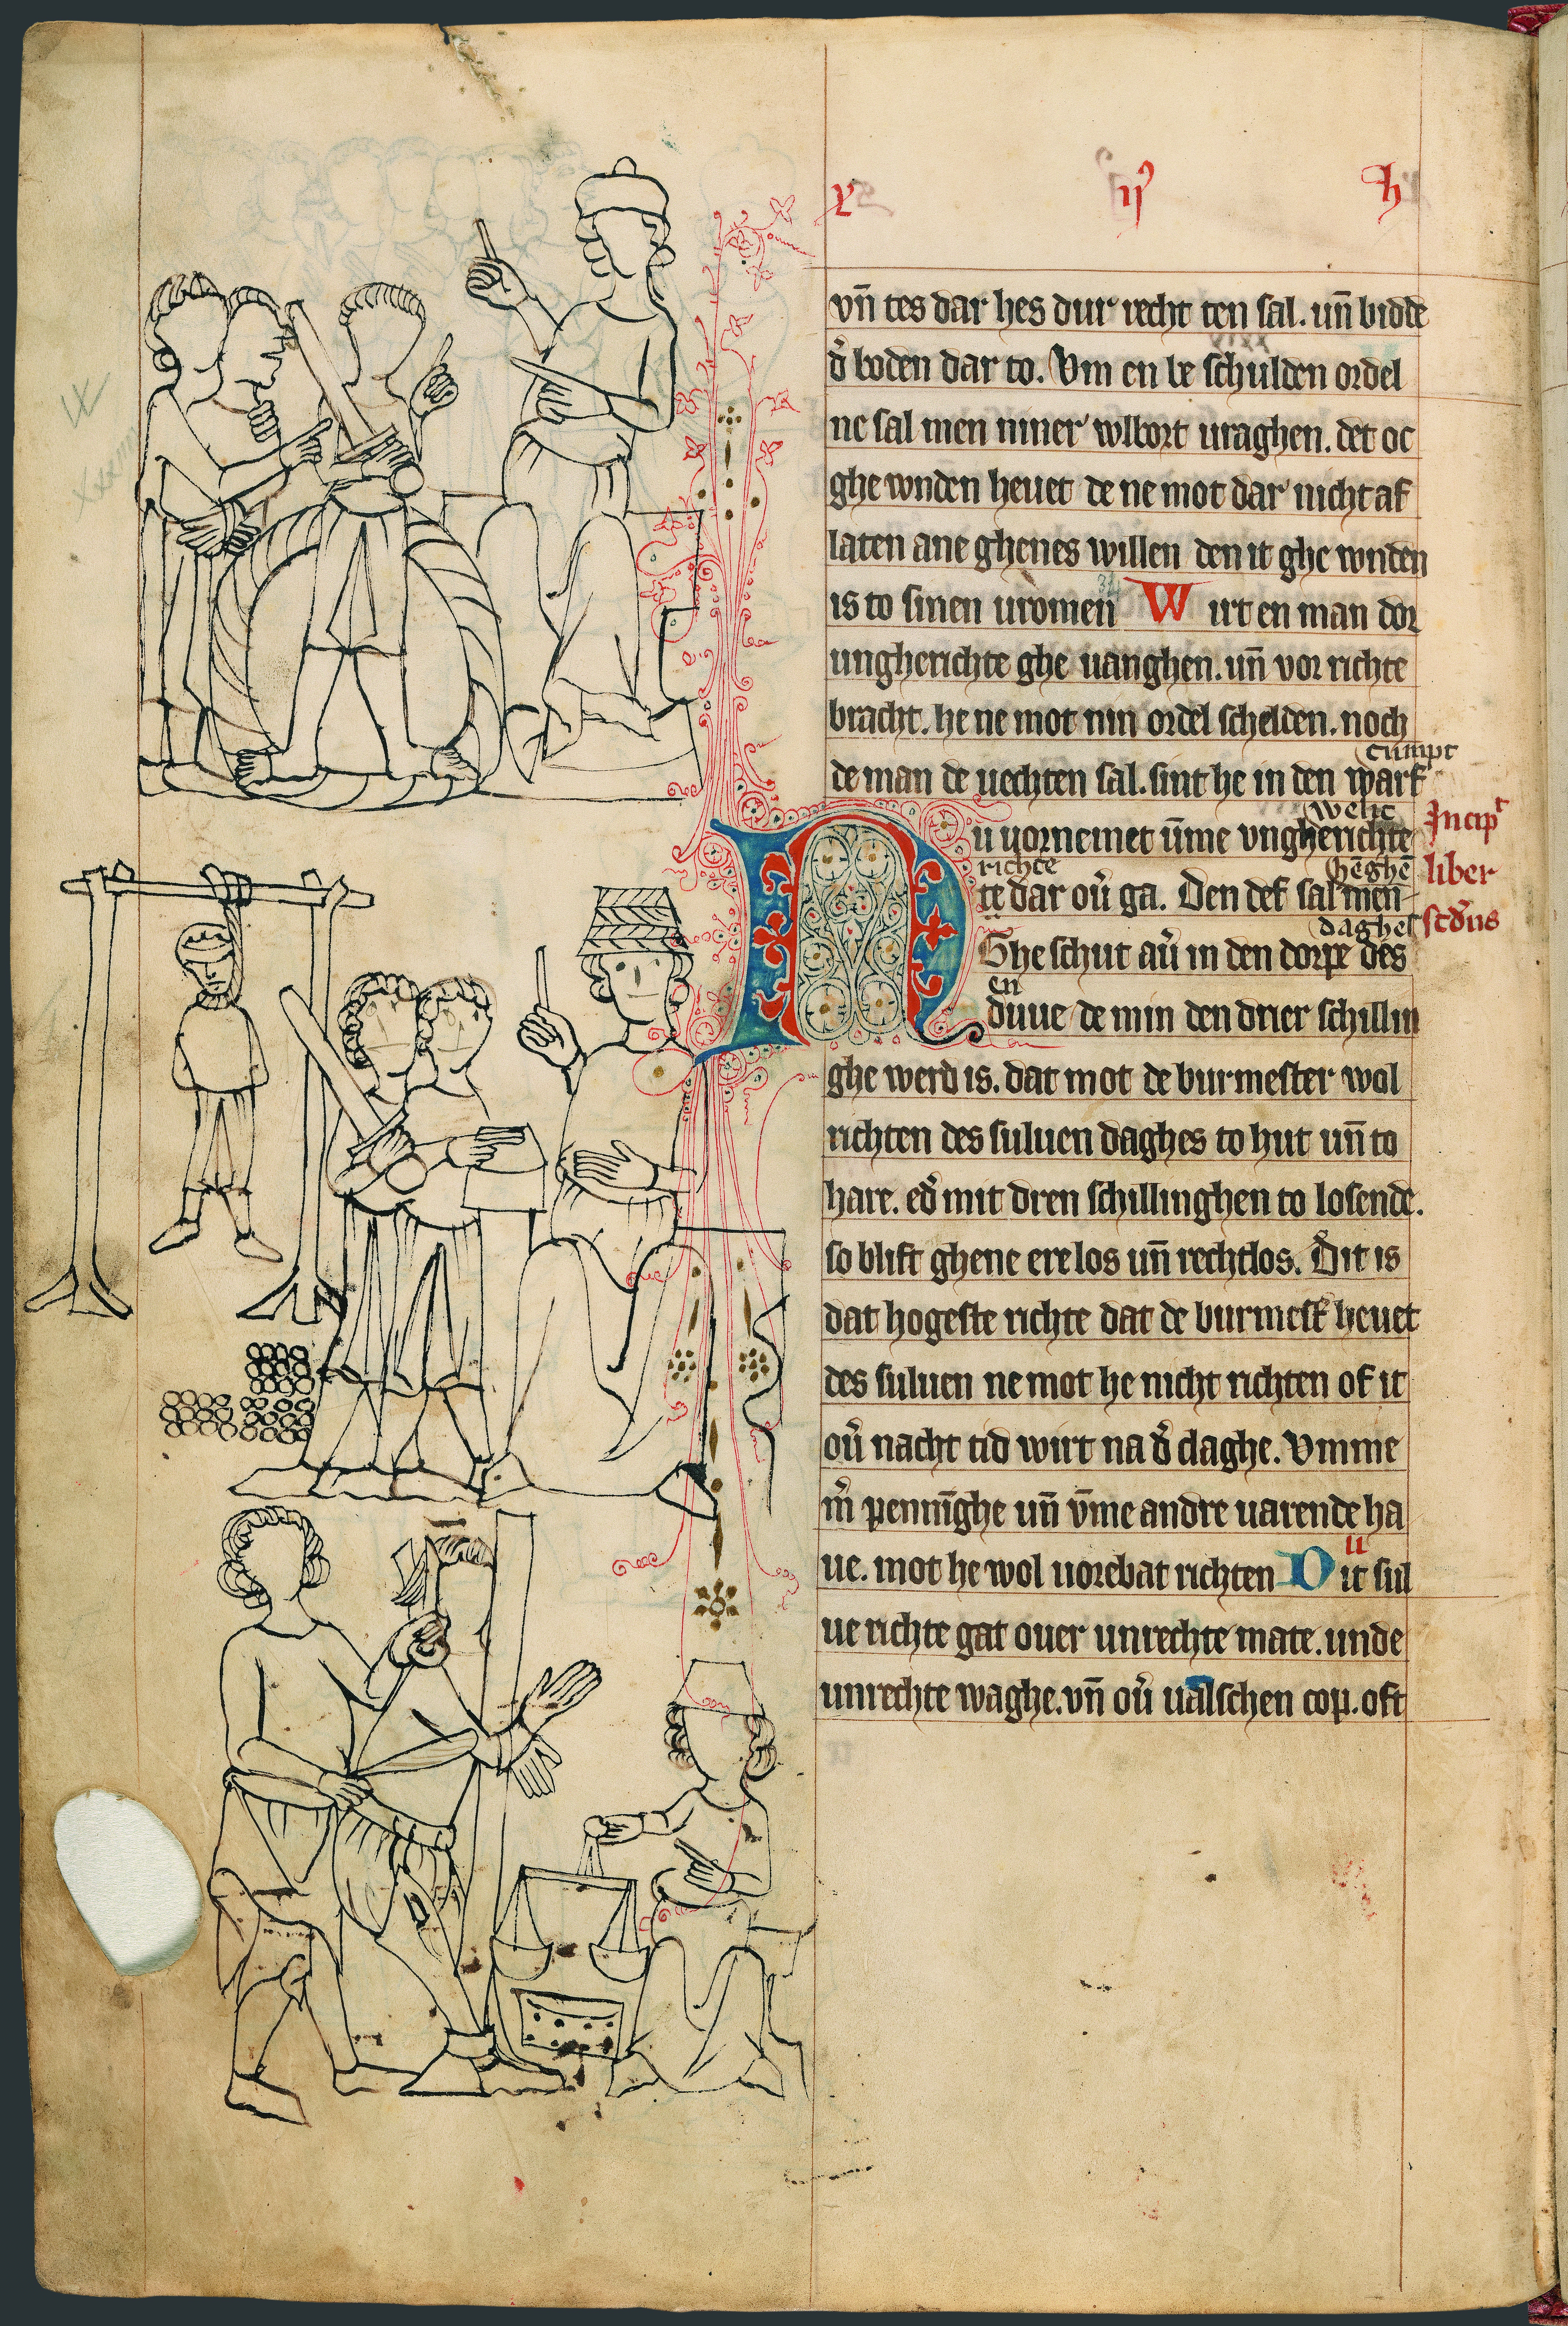 vn̄ tes dar hes dur' recht ten sal. un̄ bidde
d' boden dar to. Vm en be schulden ordel
ne sal men niner' wlbort uraghen. det oc
ghe wnden heuet de ne mot dar' nicht af
laten ane ghenes willen den it ghe wnden
is to sinen uromen W irt en man dor
ungherichte ghe uanghen. un̄ vor richte
bracht. he ne mot nin ordel schelden. noch
de man de uechten sal. sint he in den warf
cumpt
Nu uornemet ūme vngherichte
welic
richte
te dar ou' ga. Den def sal men
hēghē
Ghe schut au' in den dorpe des
daghes
en
duue de min den drier schillin
Incip
liber
scd'us
ghe werd is. dat mot de burmester wol
richten des suluen daghes to hut un̄ to
hare. ed' mit dren schillinghen to losende.
so blift ghene ere los un̄ rechtlos. Dit is
dat hogeste richte dat de burmest' heuet
des suluen ne mot he nicht richten of it
ou' nacht tid wirt na d' claghe. Vmme
m' pennīghe un̄ v̄me andre uarende ha
ue. mot he wol uorebat richten Dit sul
ue richte gat ouer unrechte mate. unde
unrechte waghe. vn̄ ou' ualschen cop. oft